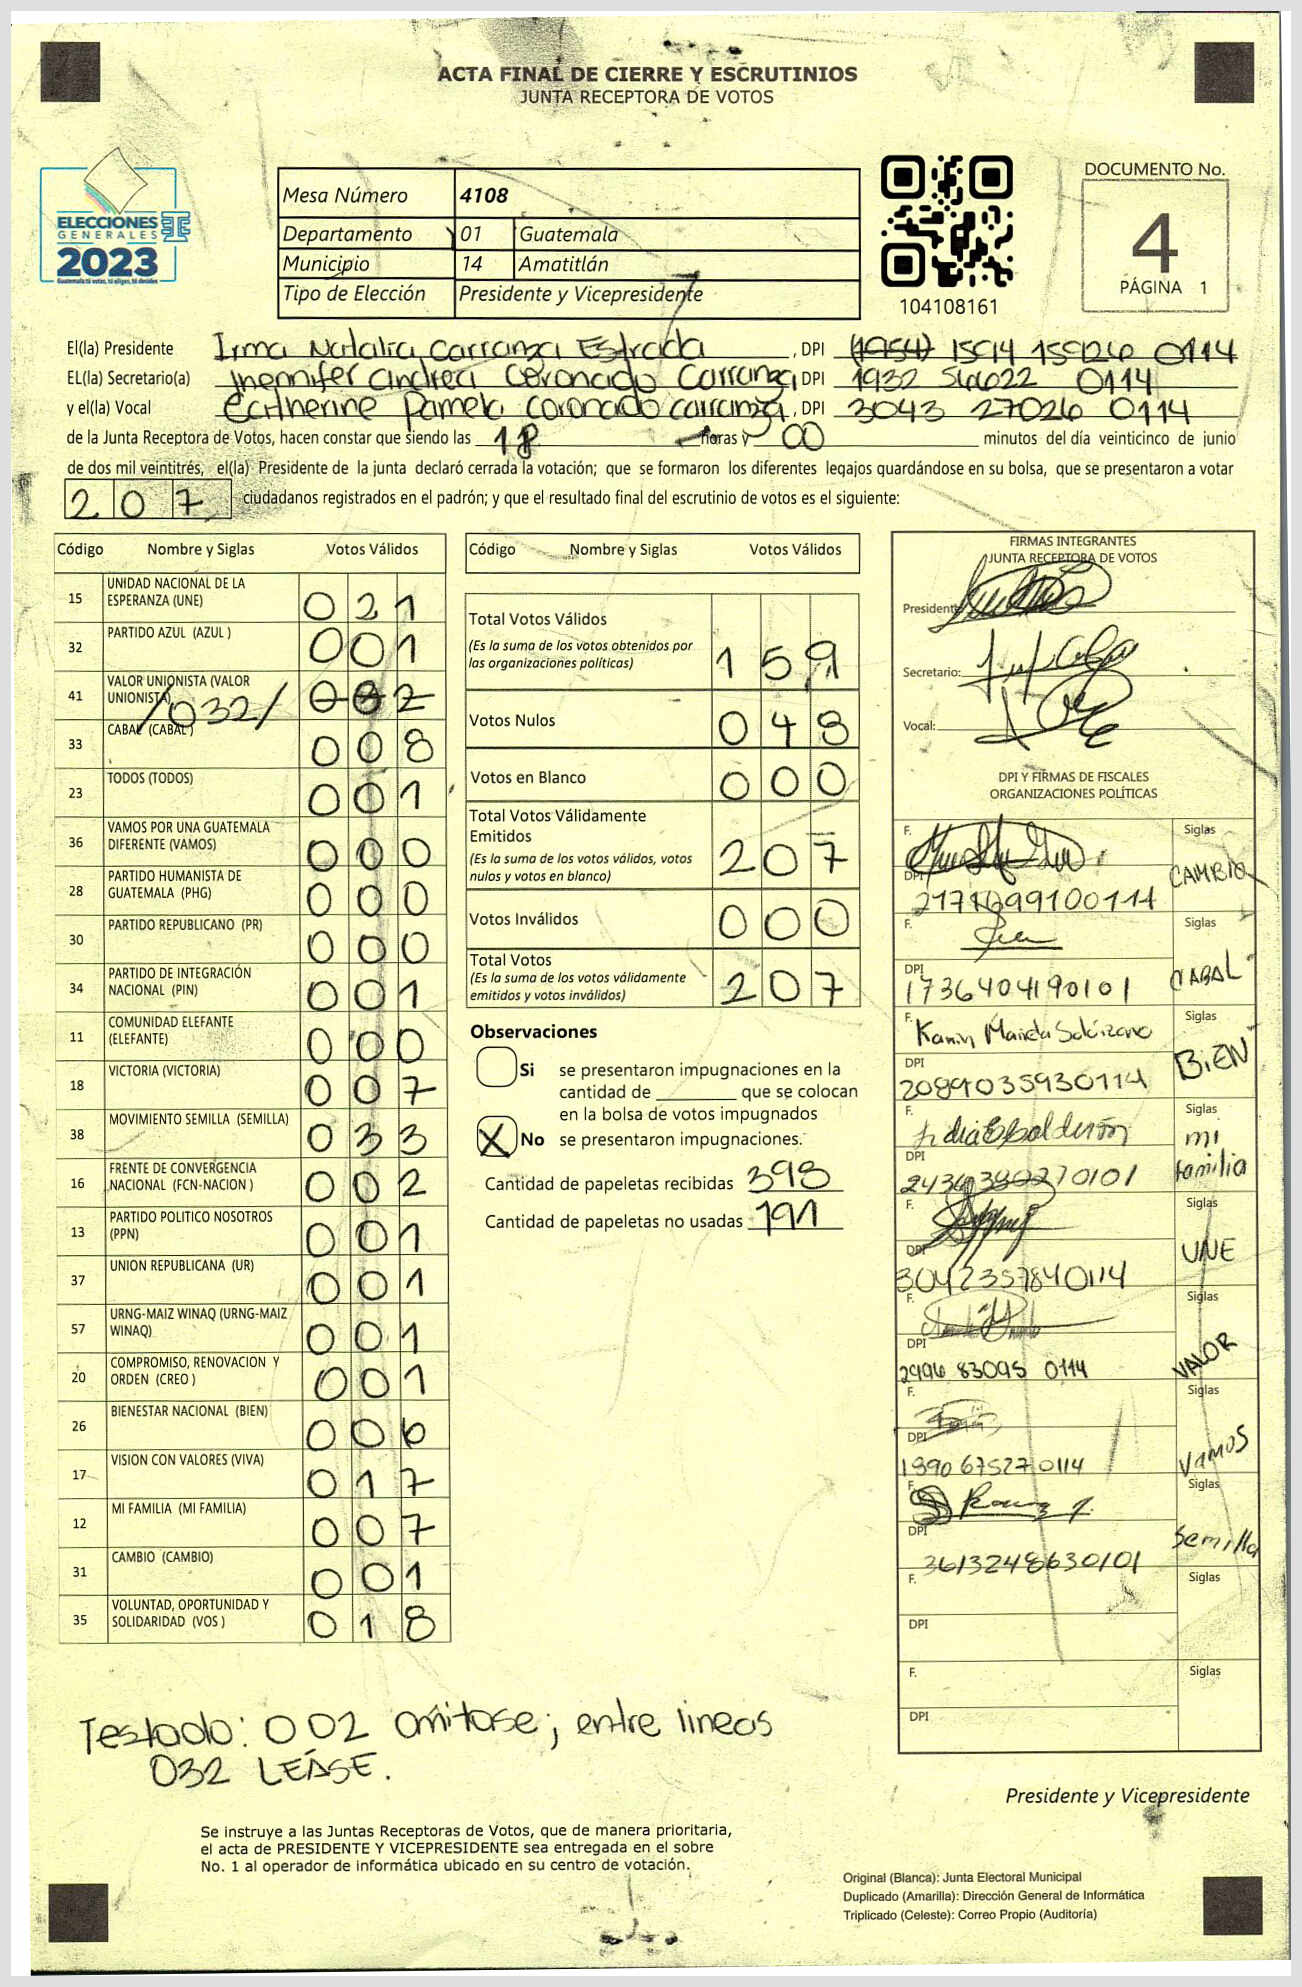 ACTA FINAL DE CIERRE Y ESCRUTINIOS
JUNTA RECEPTORA DE VOTOS
ELECCIONES
GENERALES
2023
Guatemala tú votas, tú eliges, tú decides
Mesa Número 4108
Departamento 01 Guatemala
Municipio 14 Amatitlán
Tipo de Elección Presidente y Vicepresidente
104108161
DOCUMENTO No.
4
PÁGINA 1
El(la) Presidente Irma Natalia Carranza Estrada, DPI (1954) 1594 15926 0114
EL(la) Secretario(a) Jhennifer andrea Coronado Carranza, DPI 1932 0114
y el(la) Vocal Catherine Pamela coronado carranza, DPI 3043 27026 0114
de la Junta Receptora de Votos, hacen constar que siendo las 18 horas y 00 minutos del día veinticinco de junio
de dos mil veintitrés, el(la) Presidente de la junta declaró cerrada la votación; que se formaron los diferentes legajos guardándose en su bolsa, que se presentaron a votar
207 ciudadanos registrados en el padrón; y que el resultado final del escrutinio de votos es el siguiente:
Código Nombre y Siglas Votos Válidos
15 UNIDAD NACIONAL DE LA ESPERANZA (UNE) 021
32 PARTIDO AZUL (AZUL ) 001
41 VALOR UNIONISTA (VALOR UNIONISTA) /032/ 002
33 CABAL (CABAL ) 008
23 TODOS (TODOS) 001
36 VAMOS POR UNA GUATEMALA DIFERENTE (VAMOS) 000
28 PARTIDO HUMANISTA DE GUATEMALA (PHG) 000
30 PARTIDO REPUBLICANO (PR) 000
34 PARTIDO DE INTEGRACIÓN NACIONAL (PIN) 001
11 COMUNIDAD ELEFANTE (ELEFANTE) 000
18 VICTORIA (VICTORIA) 007
38 MOVIMIENTO SEMILLA (SEMILLA) 033
16 FRENTE DE CONVERGENCIA NACIONAL (FCN-NACION ) 002
13 PARTIDO POLITICO NOSOTROS (PPN) 001
37 UNION REPUBLICANA (UR) 001
57 URNG-MAIZ WINAQ (URNG-MAIZ WINAQ) 001
20 COMPROMISO, RENOVACION Y ORDEN (CREO ) 001
26 BIENESTAR NACIONAL (BIEN) 006
17 VISION CON VALORES (VIVA) 017
12 MI FAMILIA (MI FAMILIA) 007
31 CAMBIO (CAMBIO) 001
35 VOLUNTAD, OPORTUNIDAD Y SOLIDARIDAD (VOS ) 018
Código Nombre y Siglas Votos Válidos
Total Votos Válidos 159
(Es la suma de los votos obtenidos por
las organizaciones políticas)
Votos Nulos 048
Votos en Blanco 000
Total Votos Válidamente
Emitidos 207
(Es la suma de los votos válidos, votos
nulos y votos en blanco)
Votos Inválidos 000
Total Votos 207
(Es la suma de los votos válidamente
emitidos y votos inválidos)
Observaciones
Si se presentaron impugnaciones en la
cantidad de ________ que se colocan
en la bolsa de votos impugnados
X No se presentaron impugnaciones.
Cantidad de papeletas recibidas 398
Cantidad de papeletas no usadas 191
FIRMAS INTEGRANTES
JUNTA RECEPTORA DE VOTOS
Presidente:
Secretario:
Vocal:
DPI Y FIRMAS DE FISCALES
ORGANIZACIONES POLÍTICAS
F. Siglas CAMBIO
DPI
F. Siglas CABAL
DPI 1736404190101
F. Siglas BIEN
DPI 2089035930114
F. Siglas mi familia
DPI
F. Siglas UNE
DPI 3042357840114
F. Siglas VALOR
DPI 2996 83095 0114
F. Siglas VAMOS
DPI 1990 67527 0114
F. Siglas Semilla
DPI 3613248630101
F. Siglas
DPI
F. Siglas
DPI
Testado: 002 omitase; entre lineas
032 LEÁSE.
Presidente y Vicepresidente
Se instruye a las Juntas Receptoras de Votos, que de manera prioritaria,
el acta de PRESIDENTE Y VICEPRESIDENTE sea entregada en el sobre
No. 1 al operador de informática ubicado en su centro de votación.
Original (Blanca): Junta Electoral Municipal
Duplicado (Amarilla): Dirección General de Informática
Triplicado (Celeste): Correo Propio (Auditoría)